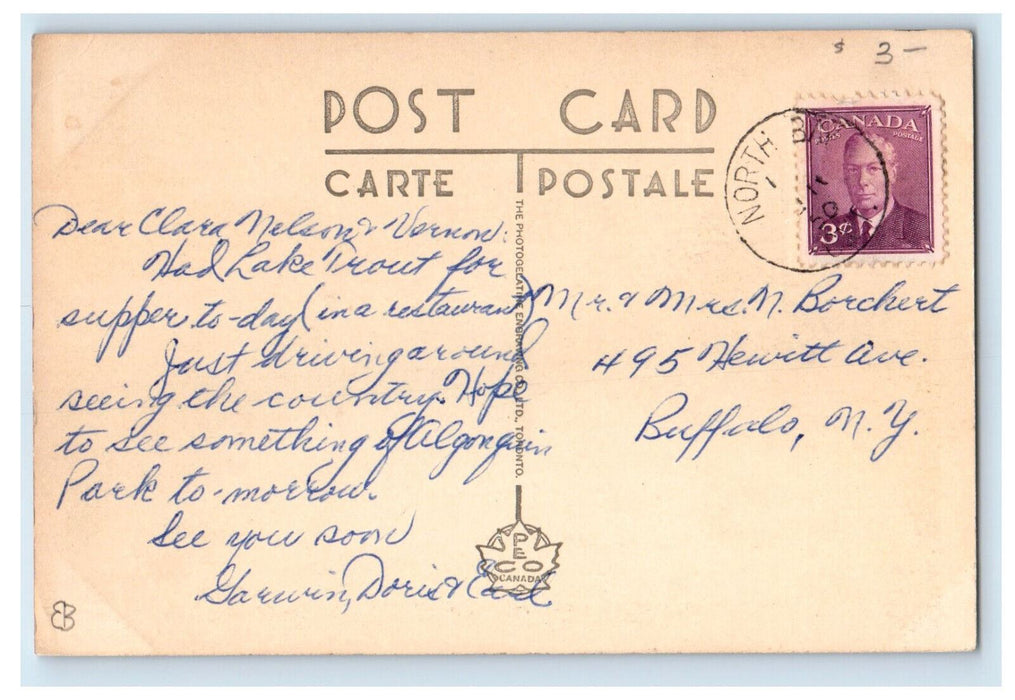 $ 3 —
POST CARD
CARTE POSTALE
CANADA
POSTES POSTAGE
3¢
NORTH BAY
Dear Clara Nelson & Vernon:
Had Lake Trout for
supper to-day (in a restaurant)
Just driving around
seeing the country. Hope
to see something of Algonquin
Park to-morrow.
See you soon
Garwin, Doris & Earl
Mr. & Mrs. N. Borchert
495 Hewitt Ave.
Buffalo, N.Y.
THE PHOTOGELATINE ENGRAVING CO. LTD., TORONTO.
PECO
CANADA